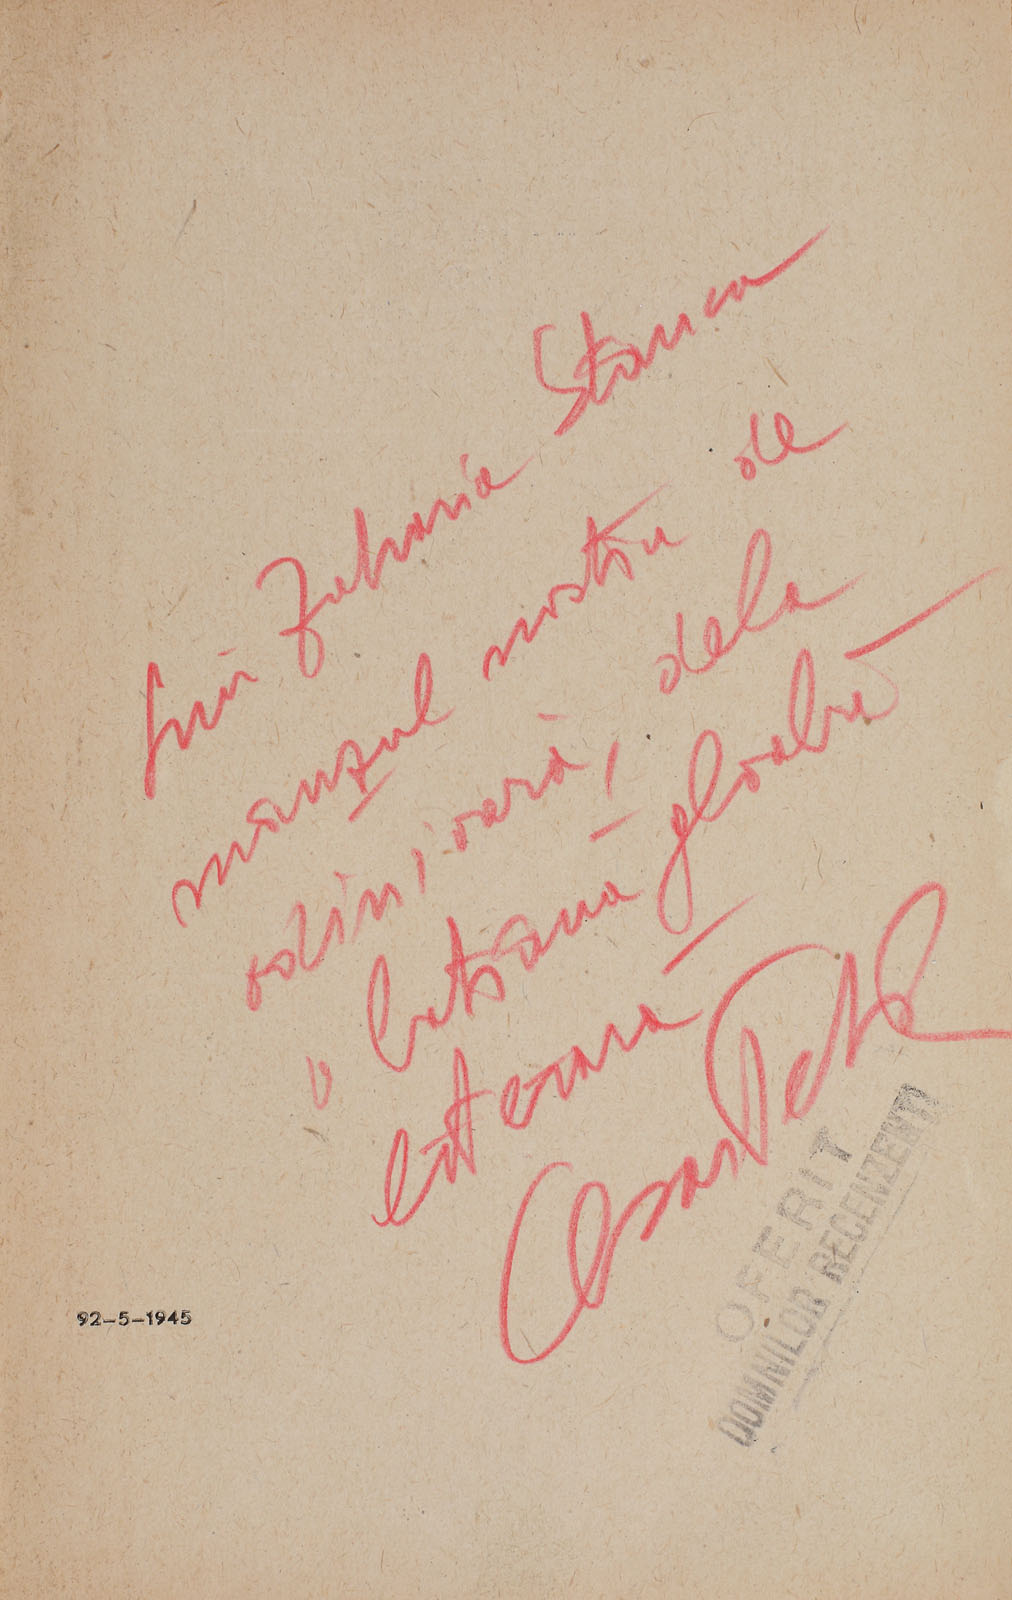 Lui Zaharia Stancu
mânzul nostru de
odinioară, dela
o bătrână gloabă
literară
Cezar Petr
OFERIT
DOMNILOR RECENZENȚI
92–5–1945